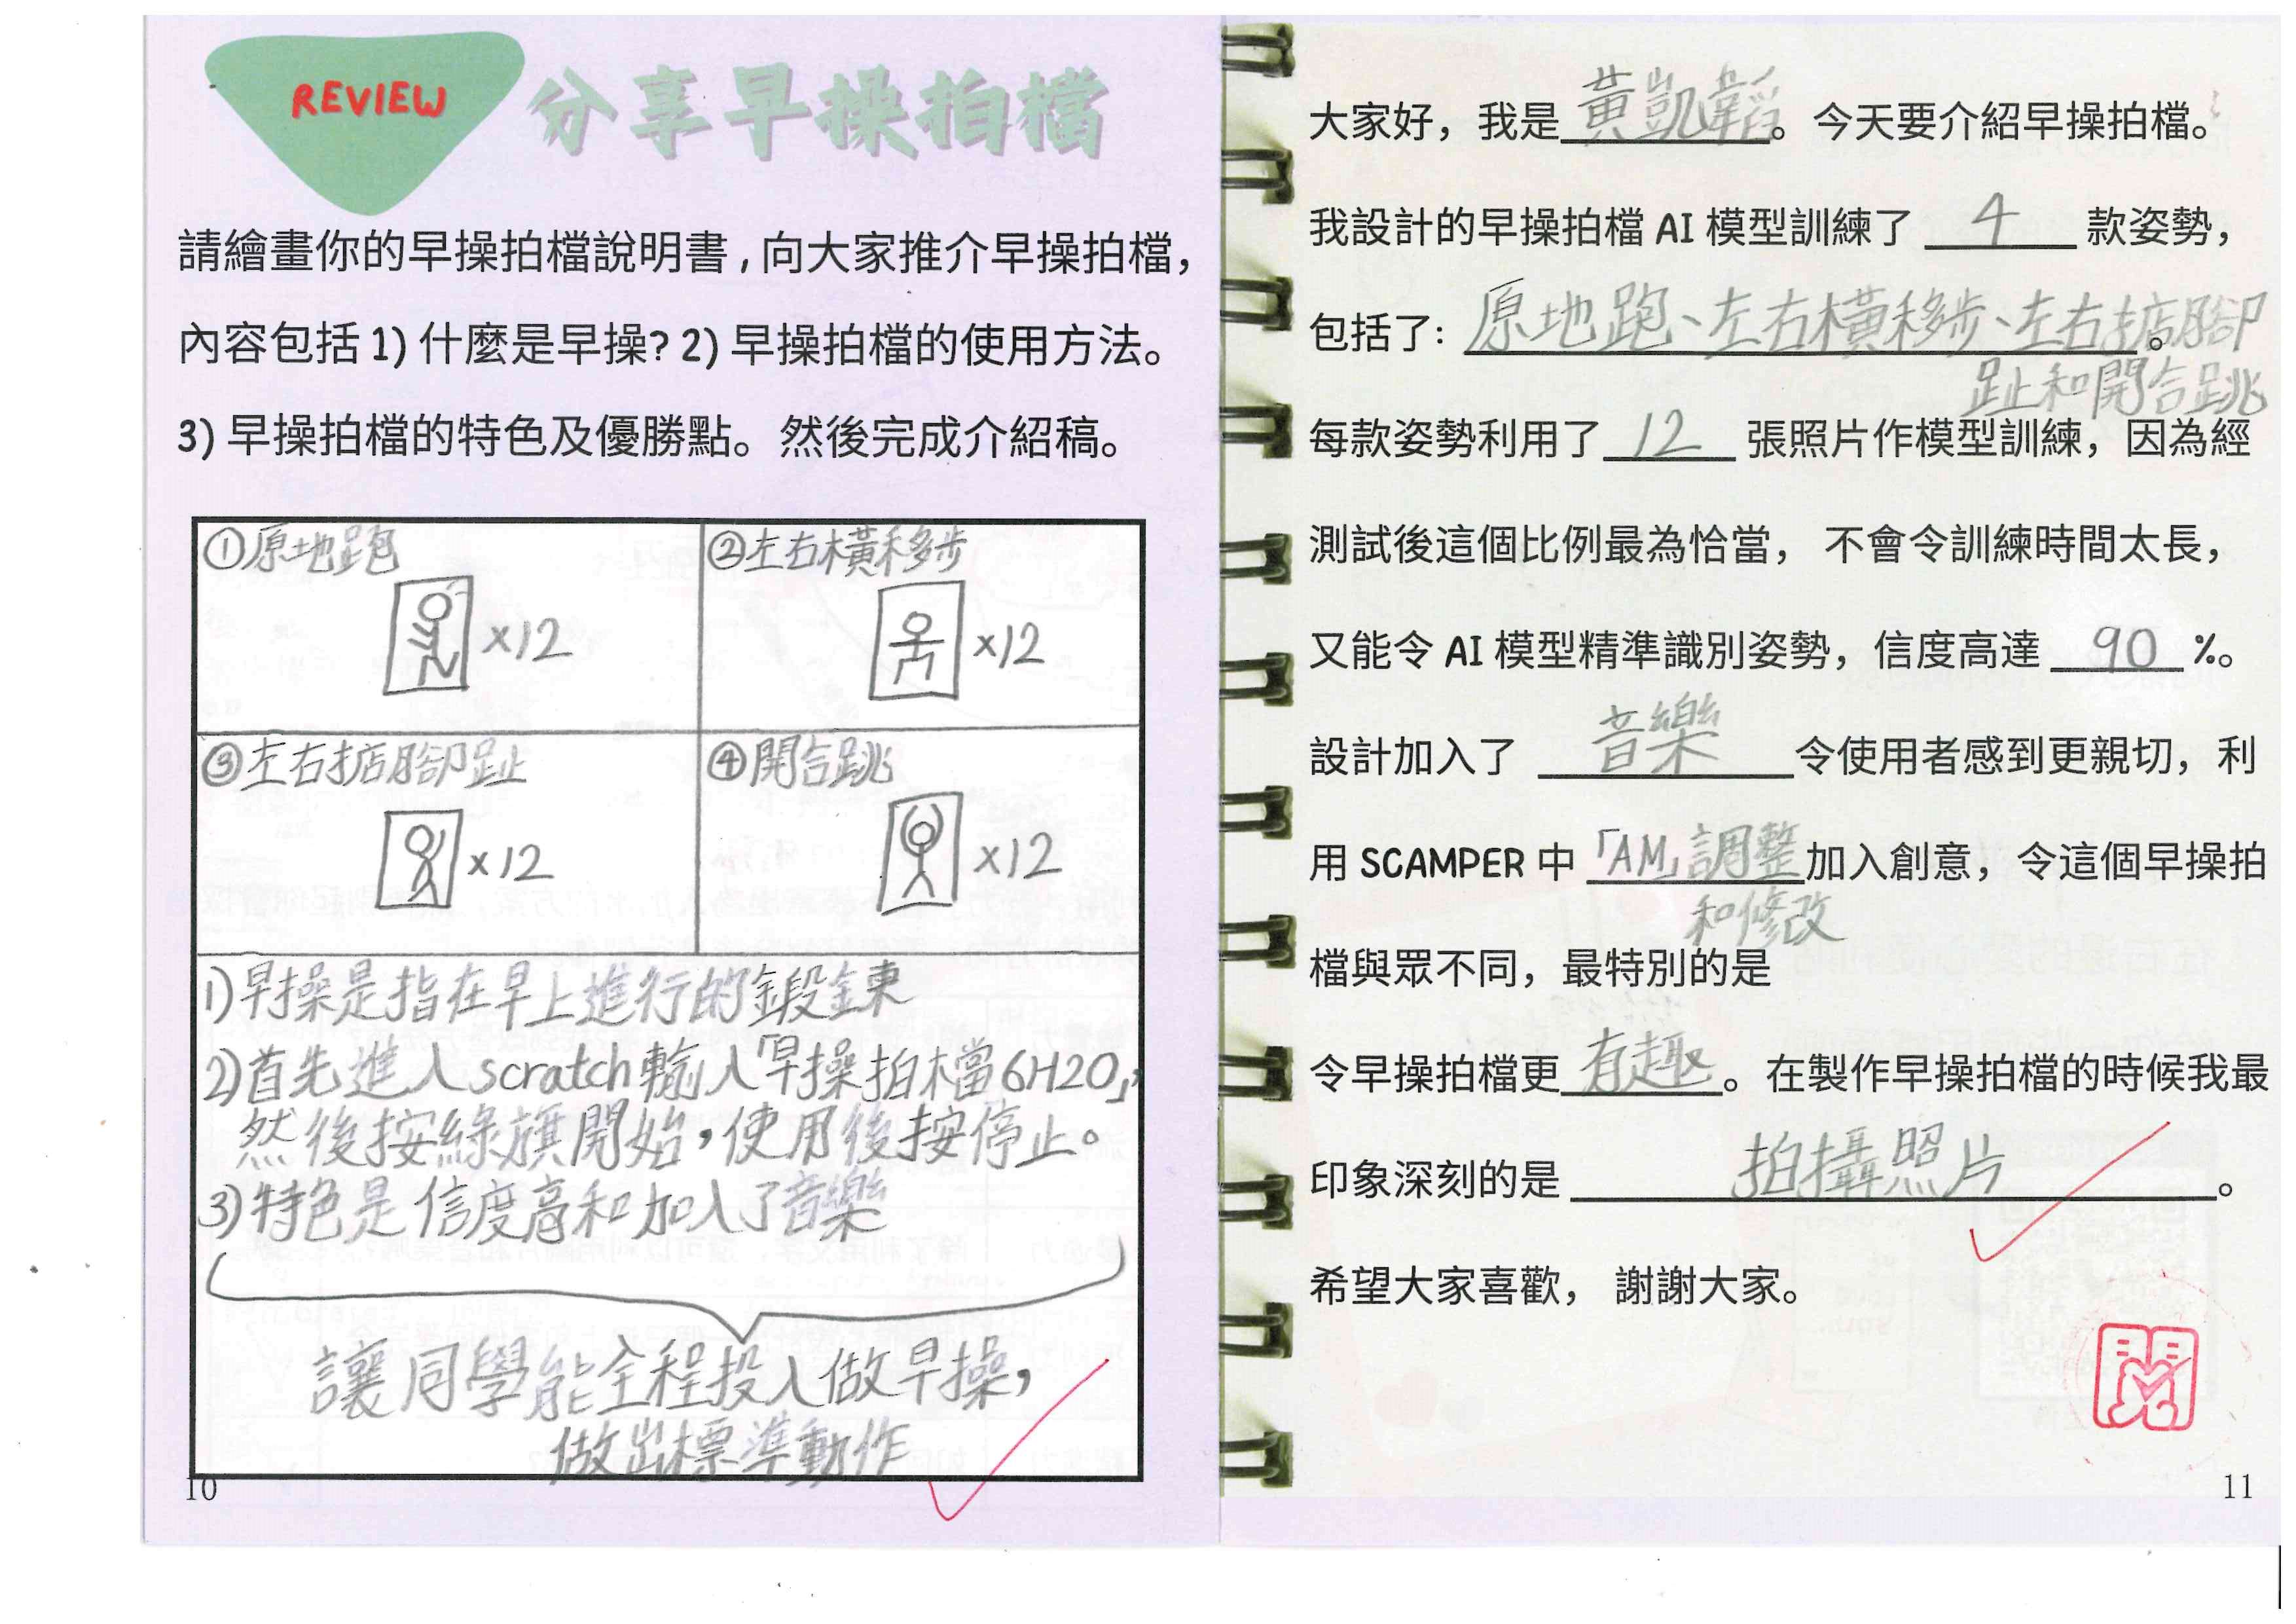 REVIEW
分享早操拍檔
請繪畫你的早操拍檔說明書,向大家推介早操拍檔,
內容包括 1) 什麼是早操? 2) 早操拍檔的使用方法。
3) 早操拍檔的特色及優勝點。然後完成介紹稿。
①原地跑
×12
②左右橫移步
×12
③左右掂腳趾
×12
④開合跳
×12
1)早操是指在早上進行的鍛鍊
2)首先進入scratch輸入「早操拍檔6H20」,
然後按綠旗開始,使用後按停止。
3)特色是信度高和加入了音樂
讓同學能全程投入做早操,
做出標準動作
10
大家好,我是黃凱韜。今天要介紹早操拍檔。
我設計的早操拍檔 AI 模型訓練了 4 款姿勢,
包括了: 原地跑、左右橫移步、左右掂腳
趾和開合跳。
每款姿勢利用了 12 張照片作模型訓練,因為經
測試後這個比例最為恰當, 不會令訓練時間太長,
又能令 AI 模型精準識別姿勢,信度高達 90 %。
設計加入了 音樂 令使用者感到更親切,利
用 SCAMPER 中「AM」調整
和修改加入創意,令這個早操拍
檔與眾不同,最特別的是
令早操拍檔更有趣。在製作早操拍檔的時候我最
印象深刻的是 拍攝照片。
希望大家喜歡, 謝謝大家。
閱
11